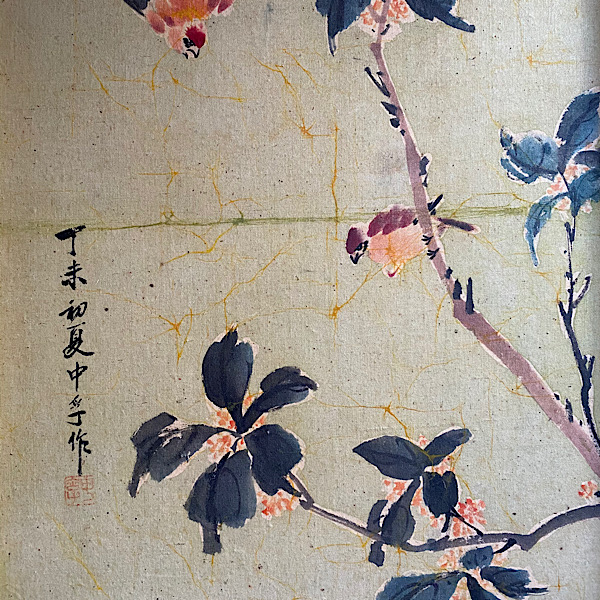 丁未初夏中孚作